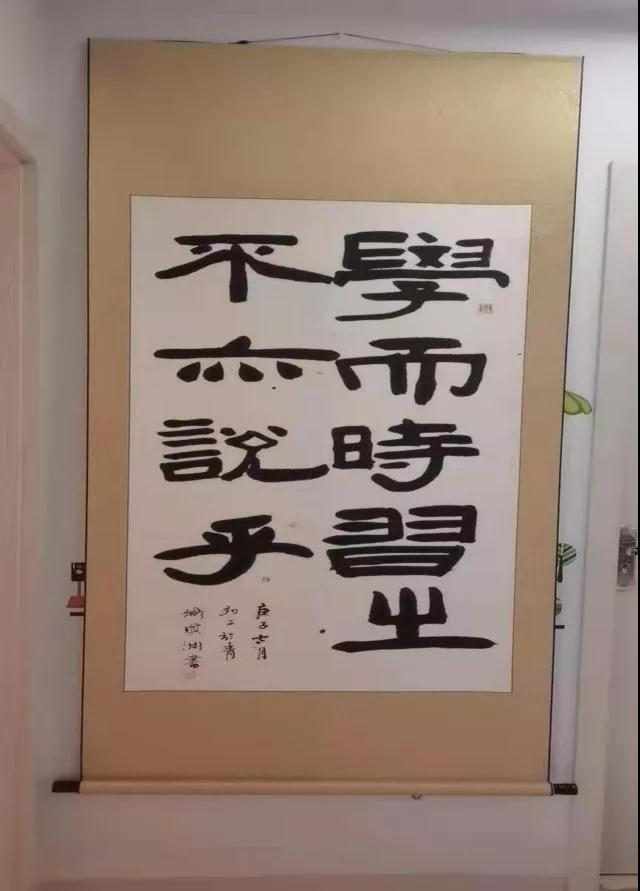 學而時習之
不亦說乎
庚子六月
初二於青
琪渊書